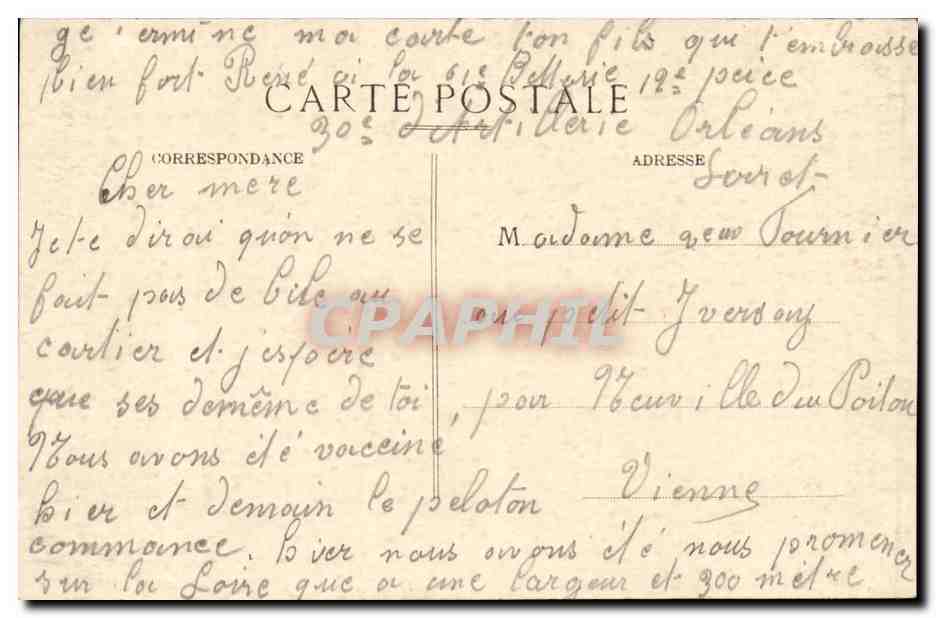 ge termine ma carte ton fils qui t'embrasse
bien fort René à la 61e Batterie 19e peice
CARTE POSTALE
30e d'Artillerie Orléans
Loiret
CORRESPONDANCE
ADRESSE
Cher mere
Je te dirai quon ne se
fait pas de bile au
cartier et j'espère
que ses demême de toi,
Nous avons été vacciné
hier et demain le peloton
commance. hier nous avons été nous promener
sur la Loire que a une largeur et 300 mètre
Madame Tournier
au petit Yversay
par Neuville du Poitou
Vienne
CPAPHIL